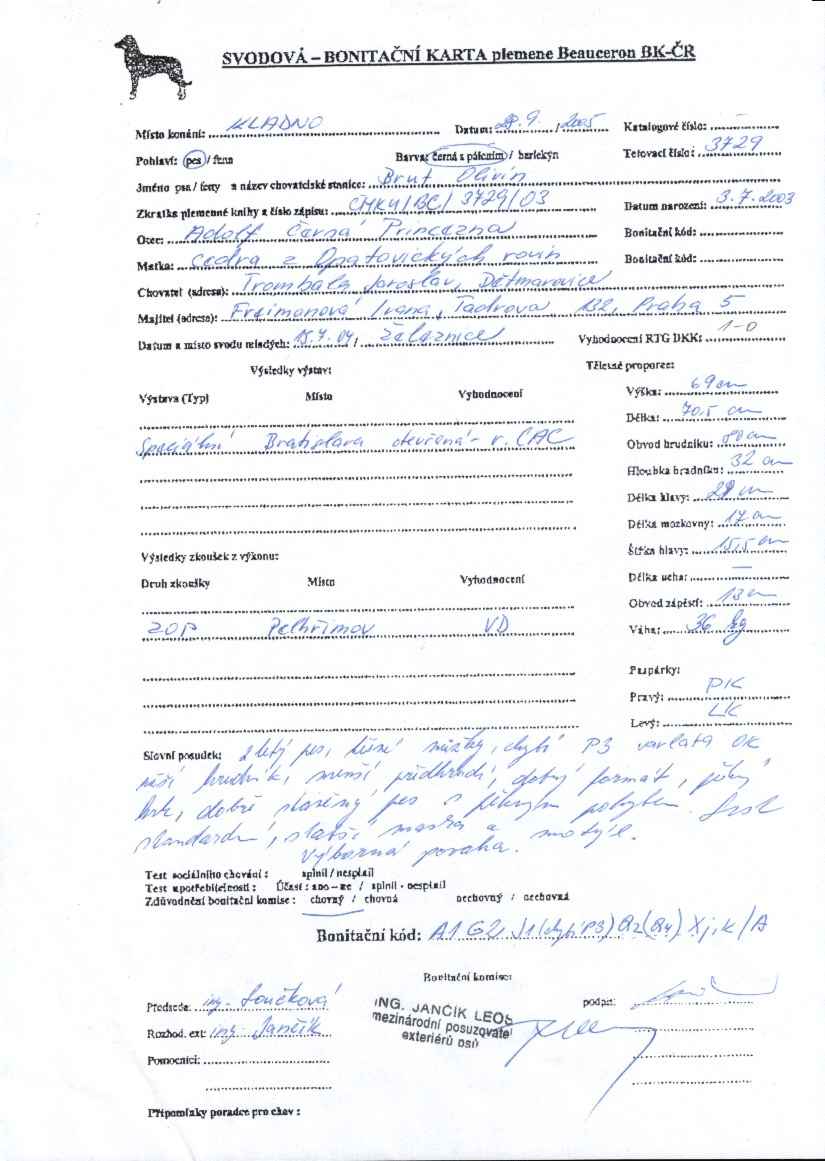 SVODOVÁ – BONITAČNÍ KARTA plemene Beauceron BK-ČR
Místo konání: KLADNO Datum: 28.9. / 2005 Katalogové číslo: –
Pohlaví: pes / fena Barva: černá s pálením / harlekýn Tetovací číslo: 3729
Jméno psa / feny a název chovatelské stanice: Brut Olivín
Zkratka plemenné knihy a číslo zápisu: CMKU/BC/3729/03 Datum narození: 3.7.2003
Otec: Adolf Černá Princezna Bonitační kód:
Matka: Cedra z Opatovických rovin Bonitační kód:
Chovatel (adresa): Trombala Jaroslav, Dětmarovice
Majitel (adresa): Frajmonová Ivana, Tadrova 132, Praha 5
Datum a místo svodu mladých: 15.7.04 / Železnice Vyhodnocení RTG DKK: 1-0
Výsledky výstav: Tělesné proporce:
Výstava (Typ) Místo Vyhodnocení Výška: 69 cm
Délka: 70,5 cm
Speciální Bratislava otevřená - r. CAC Obvod hrudníku: 80 cm
Hloubka hrudníku: 32 cm
Délka hlavy: 28 cm
Délka mozkovny: 17 cm
Výsledky zkoušek z výkonu: Šířka hlavy: 15,5 cm
Druh zkoušky Místo Vyhodnocení Délka ucha: –
Obvod zápěstí: 13 cm
ZOP Pelhřimov VD Váha: 36 kg
Paspárky:
Pravý: PK
Levý: LK
Slovní posudek: 2 letý pes, těsné nůžky, chybí P3 varlata OK
užší hrudník, menší předhrudí, dobrý formát, pěkný
krk, dobře stavěný pes s pěkným pohybem. Srst
standardní, slabší maska a motýle.
Výborná povaha.
Test sociálního chování : splnil / nesplnil
Test upotřebitelnosti : Účast : ano – ne / splnil - nesplnil
Zdůvodnění bonitační komise : chovný / chovná nechovný / nechovná
Bonitační kód: A1 G2 J1(chybí P3) Q2(Q4) X j,k/A
Bonitační komise:
Předseda: ing. Součková podpis:
Rozhod. ext: ing. Jančík
ING. JANČÍK LEOŠ
mezinárodní posuzovatel
exteriérů psů
Pomocníci:
Připomínky poradce pro chov :